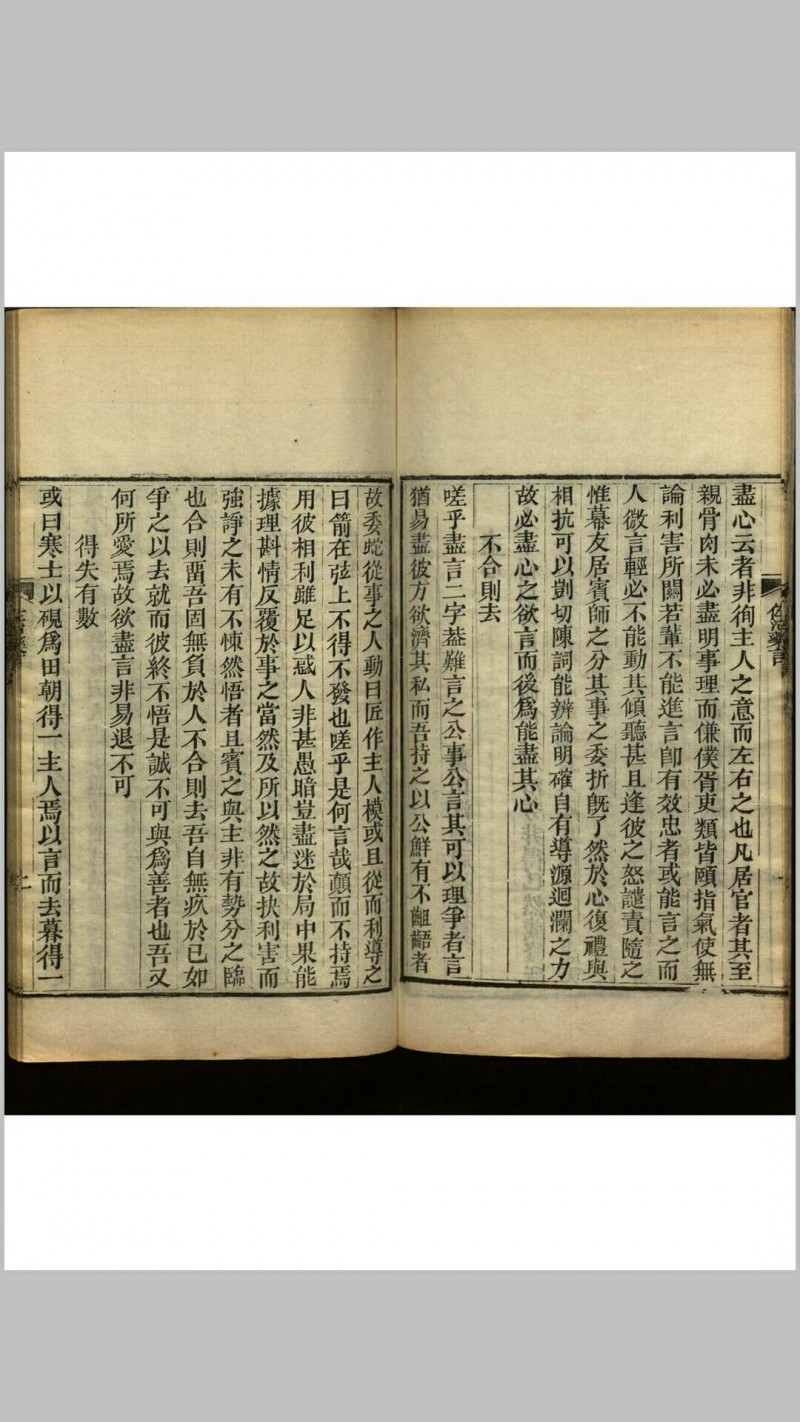 盡心云者非徇主人之意而左右之也凡居官者其至
親骨肉未必盡明事理而傔僕胥吏類皆頤指氣使無
論利害所關若輩不能進言卽有效忠者或能言之而
人微言輕必不能動其傾聽甚且逢彼之怒譴責隨之
惟幕友居賓師之分其事之委折旣了然於心復禮與
相抗可以剴切陳詞能辨論明確自有導源迴瀾之力
故必盡心之欲言而後爲能盡其心
不合則去
嗟乎盡言二字葢難言之公事公言其可以理爭者言
猶易盡彼方欲濟其私而吾持之以公鮮有不齟齬者
故委蛇從事之人動曰匠作主人模或且從而利導之
曰箭在弦上不得不發也嗟乎是何言哉顛而不持焉
用彼相利雖足以惑人非甚愚暗豈盡迷於局中果能
據理斟情反覆於事之當然及所以然之故抉利害而
強諍之未有不悚然悟者且賓之與主非有勢分之臨
也合則畱吾固無負於人不合則去吾自無疚於已如
爭之以去就而彼終不悟是誠不可與爲善者也吾又
何所愛焉故欲盡言非易退不可
得失有數
或曰寒士以硯爲田朝得一主人焉以言而去暮得一